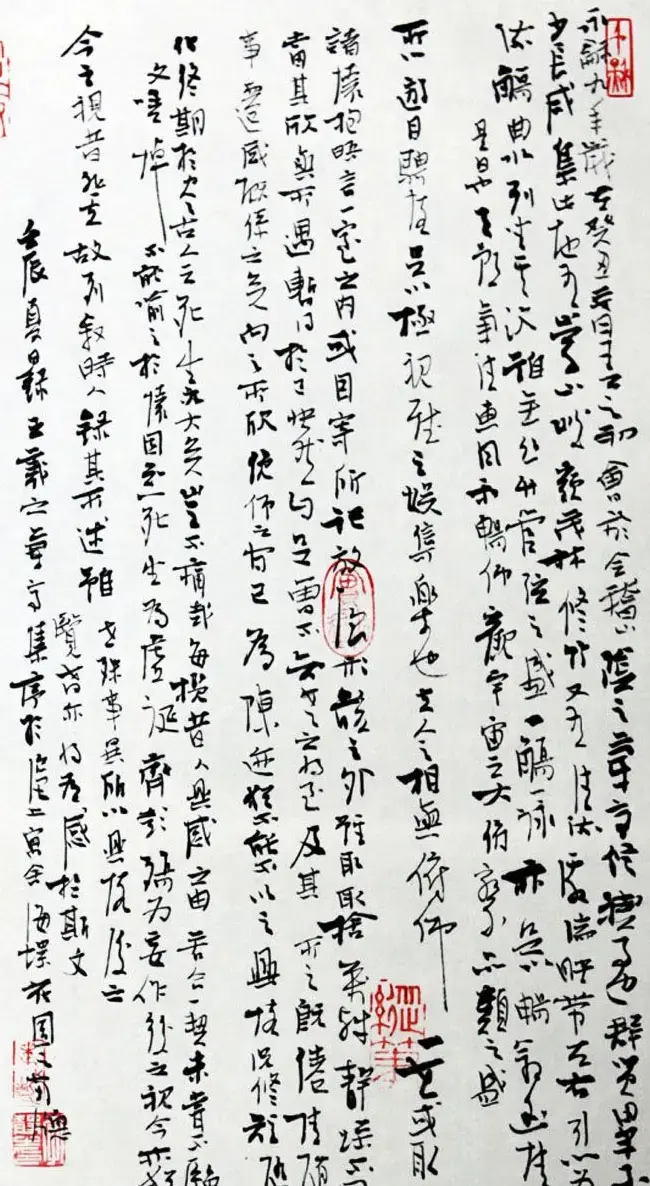 永和九年歲在癸丑暮春之初會於會稽山陰之蘭亭修禊事也群賢畢至
少長咸集此地有崇山峻嶺茂林修竹又有清流激湍映帶左右引以為
流觴曲水列坐其次雖無絲竹管弦之盛一觴一詠亦足以暢敘幽情
是日也天朗氣清惠風和暢仰觀宇宙之大俯察品類之盛
所以遊目騁懷足以極視聽之娛信可樂也夫人之相與俯仰一世或取
諸懷抱晤言一室之內或因寄所託放浪形骸之外雖取捨萬殊靜躁不同
當其欣於所遇暫得於己快然自足曾不知老之將至及其所之既倦情隨
事遷感慨係之矣向之所欣俛仰之間已為陳迹猶不能不以之興懷況修短隨
化終期於盡古人云死生亦大矣豈不痛哉每攬昔人興感之由若合一契未嘗不臨
文嗟悼不能喻之於懷固知一死生為虛誕齊彭殤為妄作後之視今亦猶
今之視昔悲夫故列敘時人錄其所述雖世殊事異所以興懷後之
覽者亦將有感於斯文
壬辰夏日錄王羲之蘭亭集序於滬上寓舍